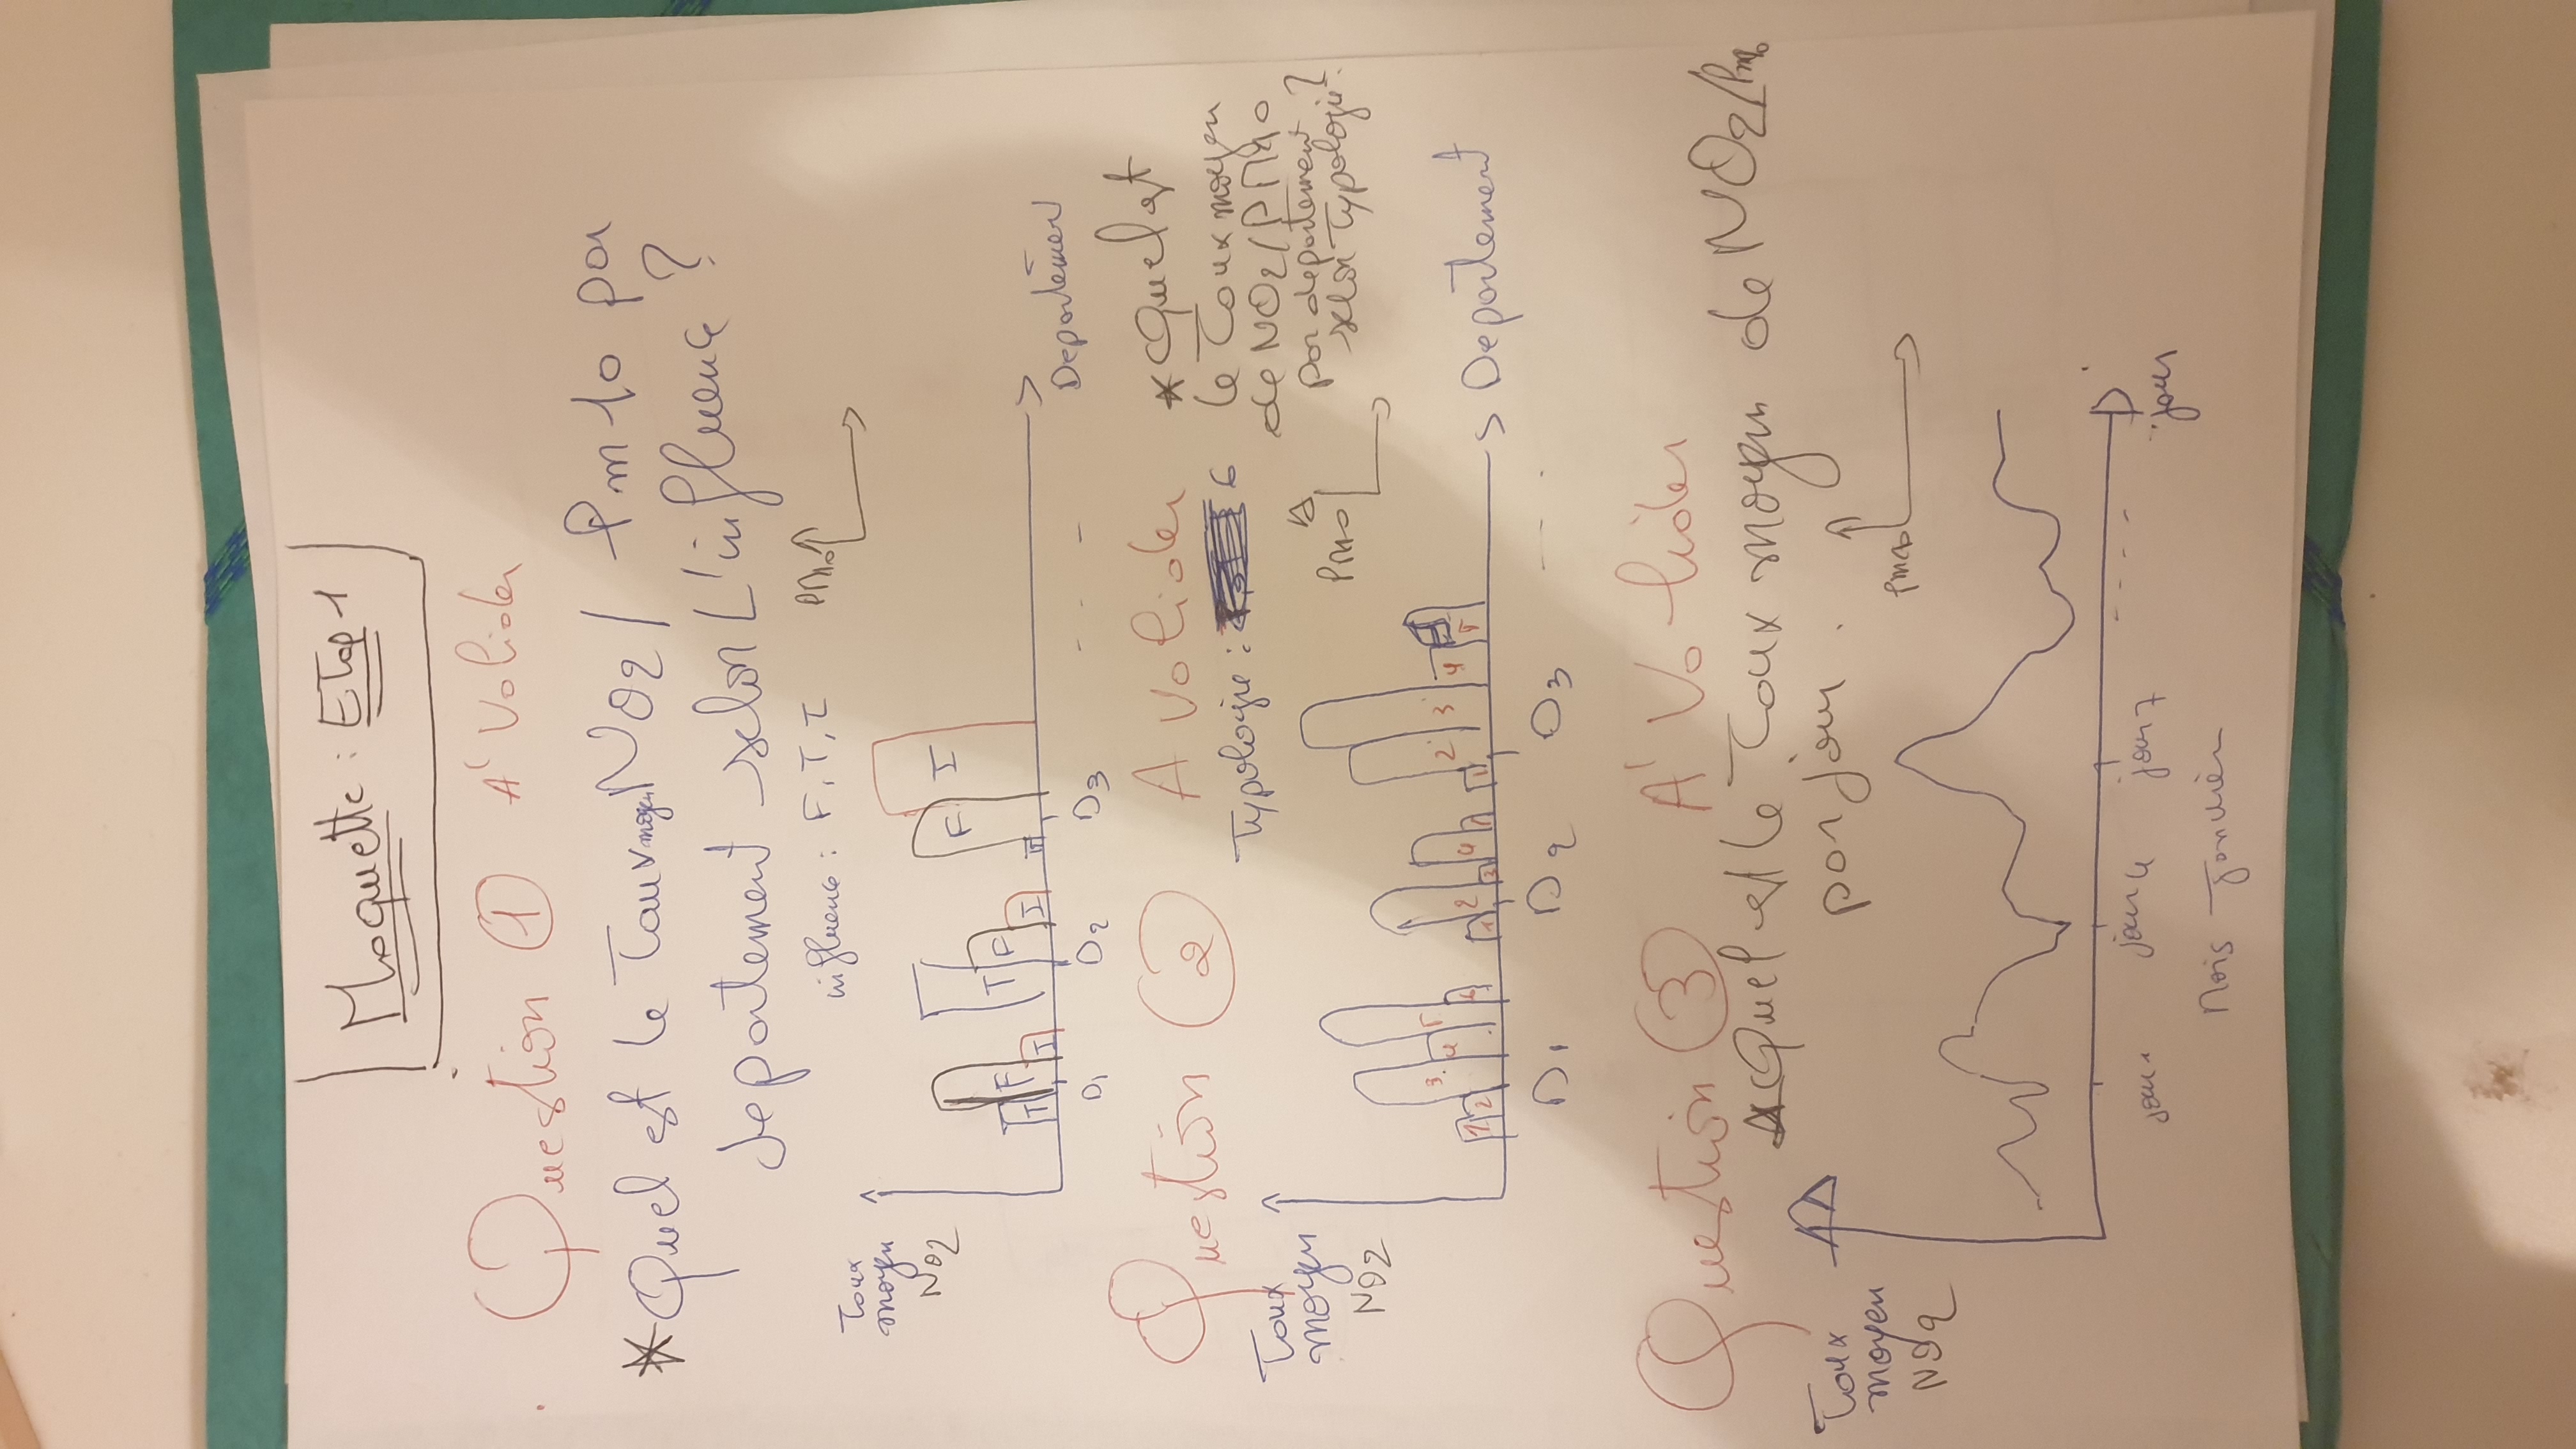 Maquette : ETap 1
Question 1 A' Valider
* Quel est le Taux moyen NO2 / Pm10 par
departement selon L'influence ?
influence : F, T, I
PM10
Taux
moyen
NO2
T F I T F I T F I
D1 D2 D3 - - -
Departement
Question 2 A Valider
* Quel est
le Taux moyen
de NO2 / PM10
par departement
selon Typologie ?
Typologie : 6
PM10
Taux
moyen
NO2
1 2 3 4 5 6 1 2 3 4 1 2 3 4 5
Departement
D1 D2 D3 - - -
Question 3 A' Valider
* Quel est le Taux moyen de NO2/Pm10
par jour .
Pm10
Taux
moyen
NO2
jour 1 jour 4 jour 7 - - - - jour
Mois Janvier